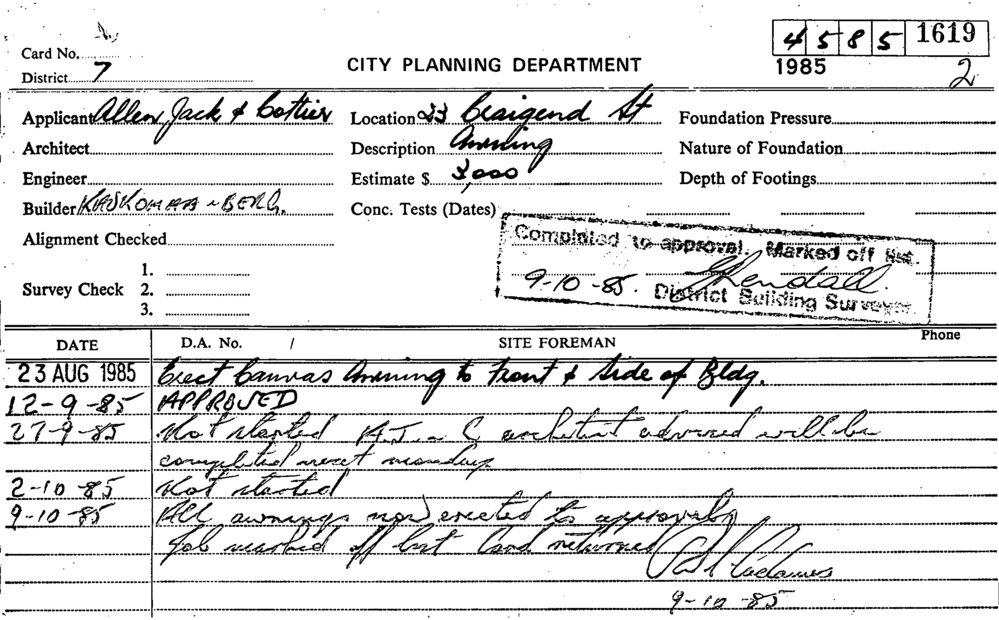 4 5 8 5 1619
Card No.
District 7
CITY PLANNING DEPARTMENT
1985
2
Applicant Allen Jack & Cottier
Location 23 Craigend St
Foundation Pressure
Architect
Description Awning
Nature of Foundation
Engineer
Estimate $ 3,000
Depth of Footings
Builder
Conc. Tests (Dates)
Alignment Checked
Completed to approval. Marked off list.
9-10-85. Kendall.
District Building Surveyor.
Survey Check
1.
2.
3.
DATE D.A. No. / SITE FOREMAN Phone
23 AUG 1985 Erect Canvas Awning to Front & Side of Bldg.
12-9-85 APPROVED
27-9-85 Not started A.J. & C architect advised will be
completed next monday
2-10-85 Not started
9-10-85 All awnings now erected to approval
Job marked off list Card returned
9-10-85